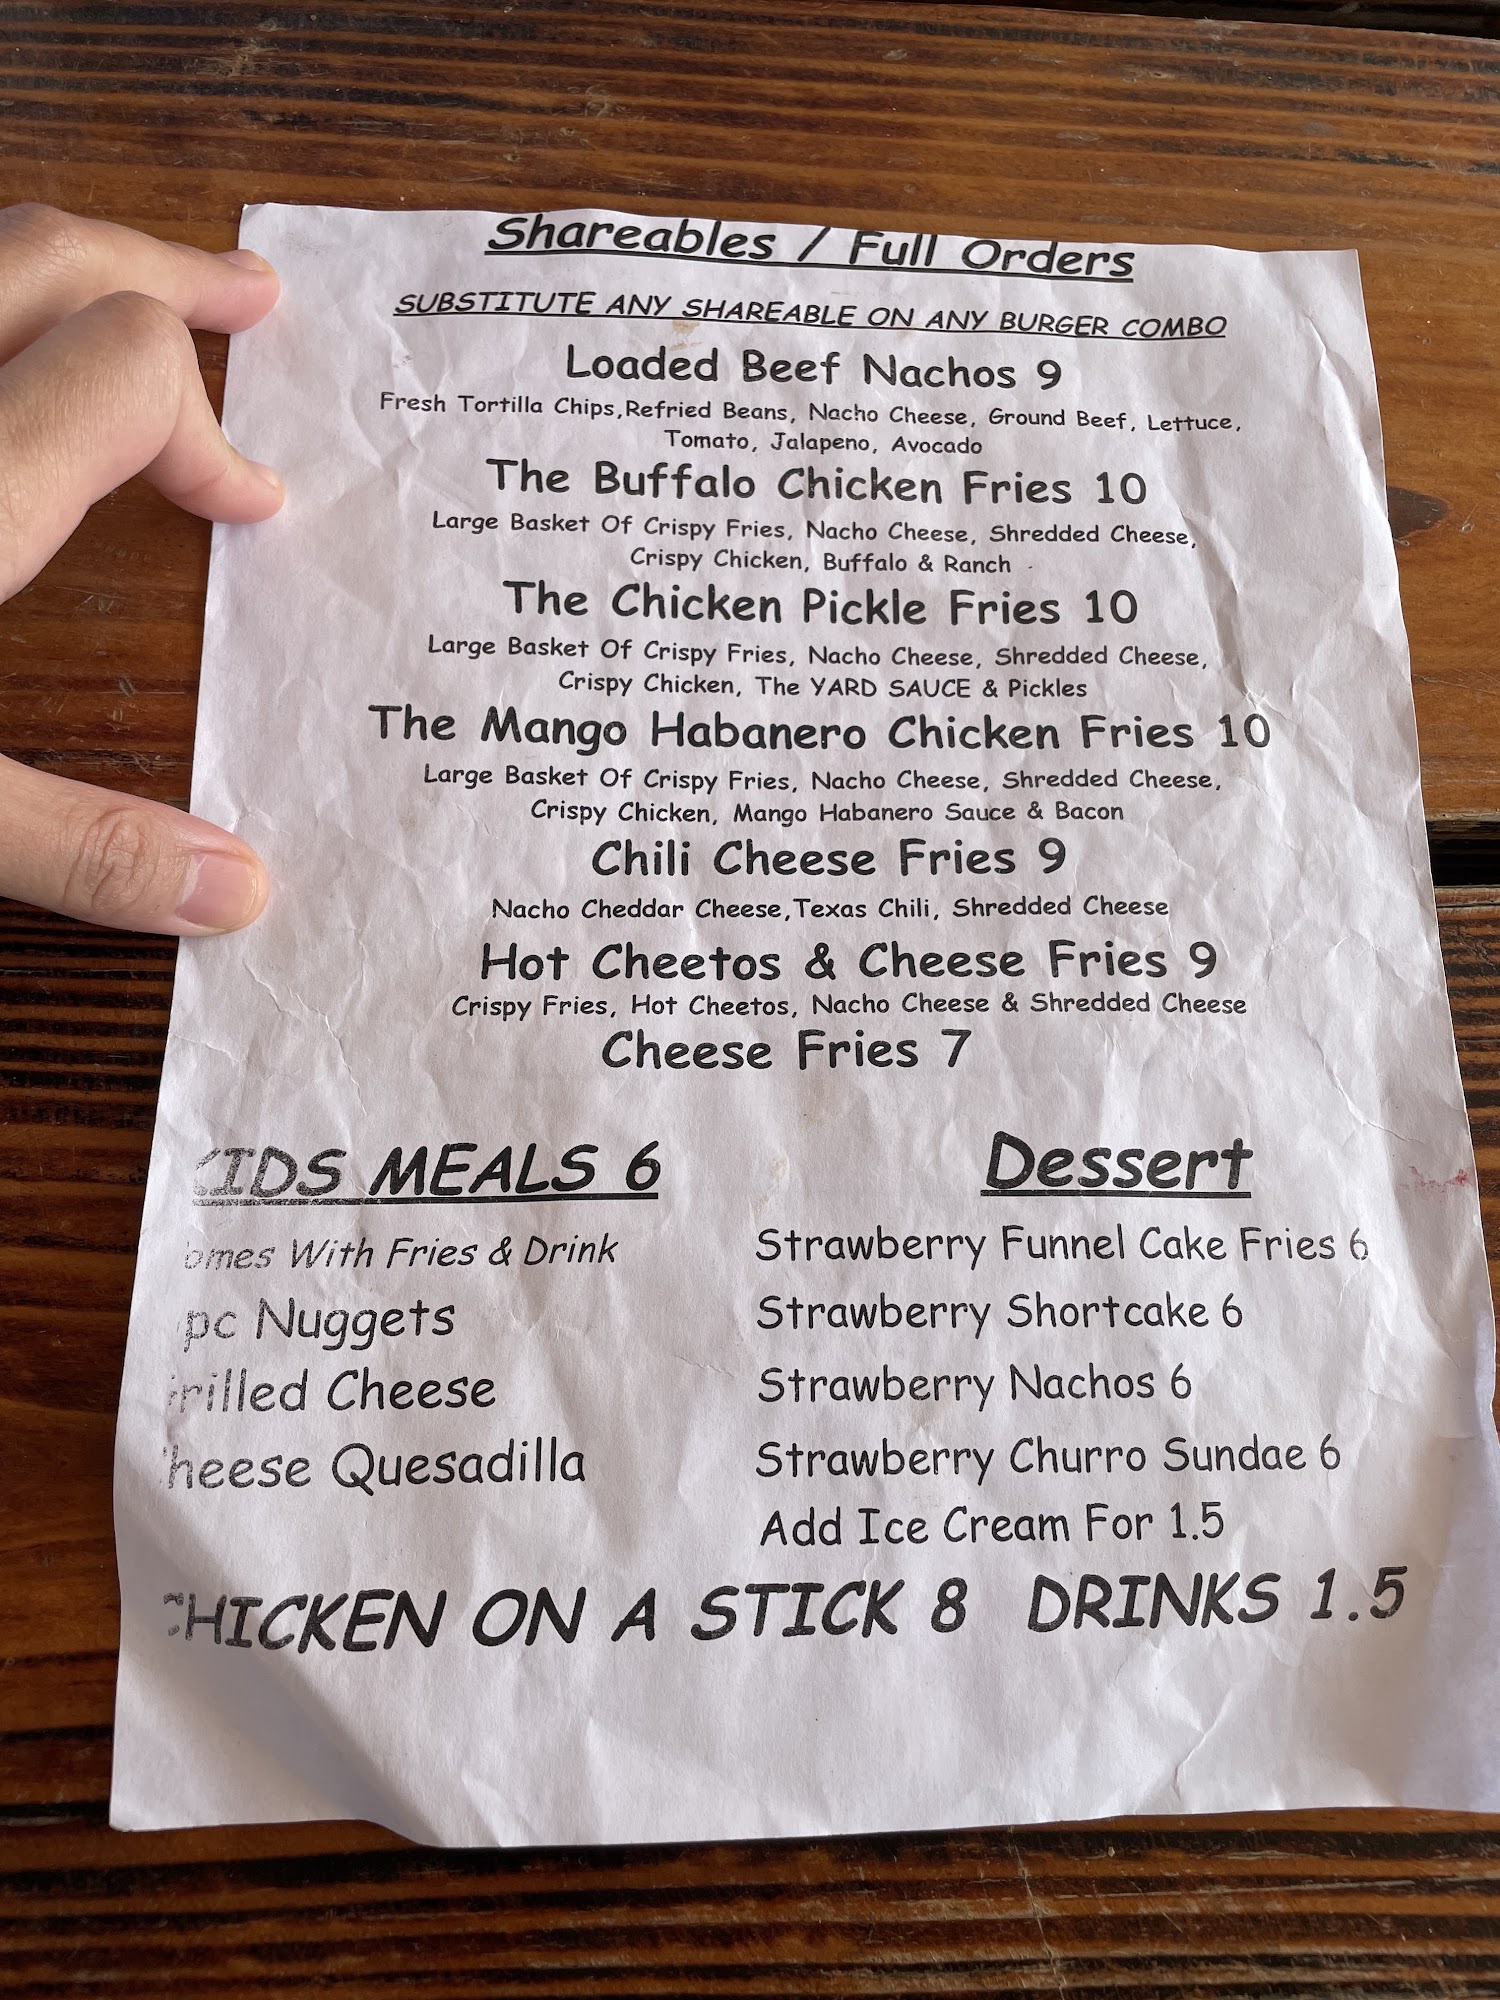 Shareables / Full Orders
SUBSTITUTE ANY SHAREABLE ON ANY BURGER COMBO
Loaded Beef Nachos 9
Fresh Tortilla Chips,Refried Beans, Nacho Cheese, Ground Beef, Lettuce,
Tomato, Jalapeno, Avocado
The Buffalo Chicken Fries 10
Large Basket Of Crispy Fries, Nacho Cheese, Shredded Cheese,
Crispy Chicken, Buffalo & Ranch
The Chicken Pickle Fries 10
Large Basket Of Crispy Fries, Nacho Cheese, Shredded Cheese,
Crispy Chicken, The YARD SAUCE & Pickles
The Mango Habanero Chicken Fries 10
Large Basket Of Crispy Fries, Nacho Cheese, Shredded Cheese,
Crispy Chicken, Mango Habanero Sauce & Bacon
Chili Cheese Fries 9
Nacho Cheddar Cheese,Texas Chili, Shredded Cheese
Hot Cheetos & Cheese Fries 9
Crispy Fries, Hot Cheetos, Nacho Cheese & Shredded Cheese
Cheese Fries 7
KIDS MEALS 6
omes With Fries & Drink
pc Nuggets
rilled Cheese
heese Quesadilla
Dessert
Strawberry Funnel Cake Fries 6
Strawberry Shortcake 6
Strawberry Nachos 6
Strawberry Churro Sundae 6
Add Ice Cream For 1.5
CHICKEN ON A STICK 8 DRINKS 1.5